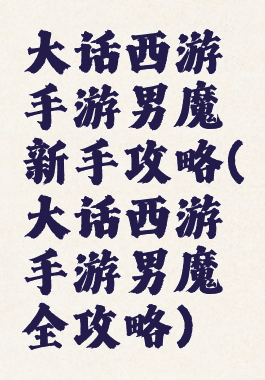 大话西游
手游男魔
新手攻略(
大话西游
手游男魔
全攻略)